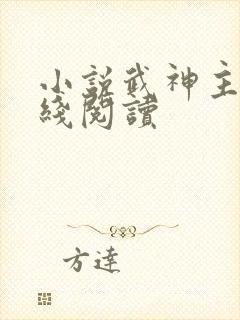 小説武神主
綫閱讀
方達